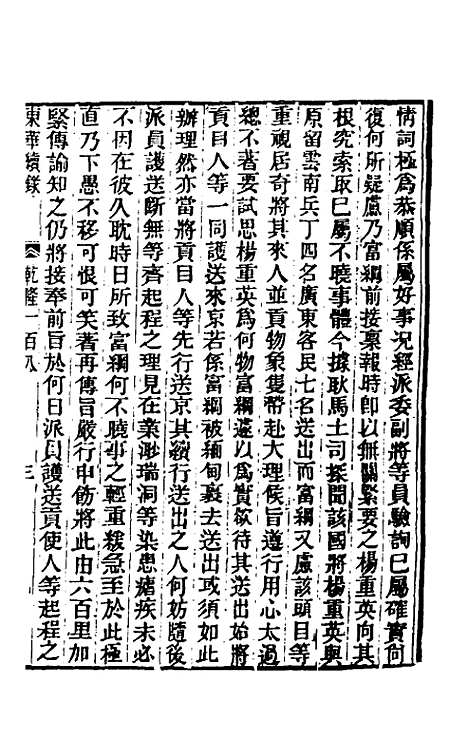 情詞極為恭順係屬好事況經派委副將等員驗詢已屬確實何
復何所疑慮乃富綱前接稟報時卽以無關緊要之楊重英向其
根究索取已屬不曉事體今據耿馬土司探聞該國將楊重英與
原留雲南兵丁四名廣東客民七名送出而富綱又慮該頭目等
重視居奇將其來人並貢物象隻帶赴大理候旨遵行用心太過
總不著要試思楊重英為何物富綱遽以為貴欲待其送出始將
貢目人等一同護送來京若係富綱被緬甸裹去送出或須如此
辦理然亦當將貢目人等先行送京其續行送出之人何妨隨後
派員護送斷無等齊起程之理見在業渺瑞洞等染患瘧疾未必
不因在彼久耽時日所致富綱何不曉事之輕重緩急至於此極
直乃下愚不移可恨可笑著再傳旨嚴行申飭將此由六百里加
緊傳諭知之仍將接奉前旨於何日派員護送貢使人等起程之
東華續錄 乾隆一百八 三